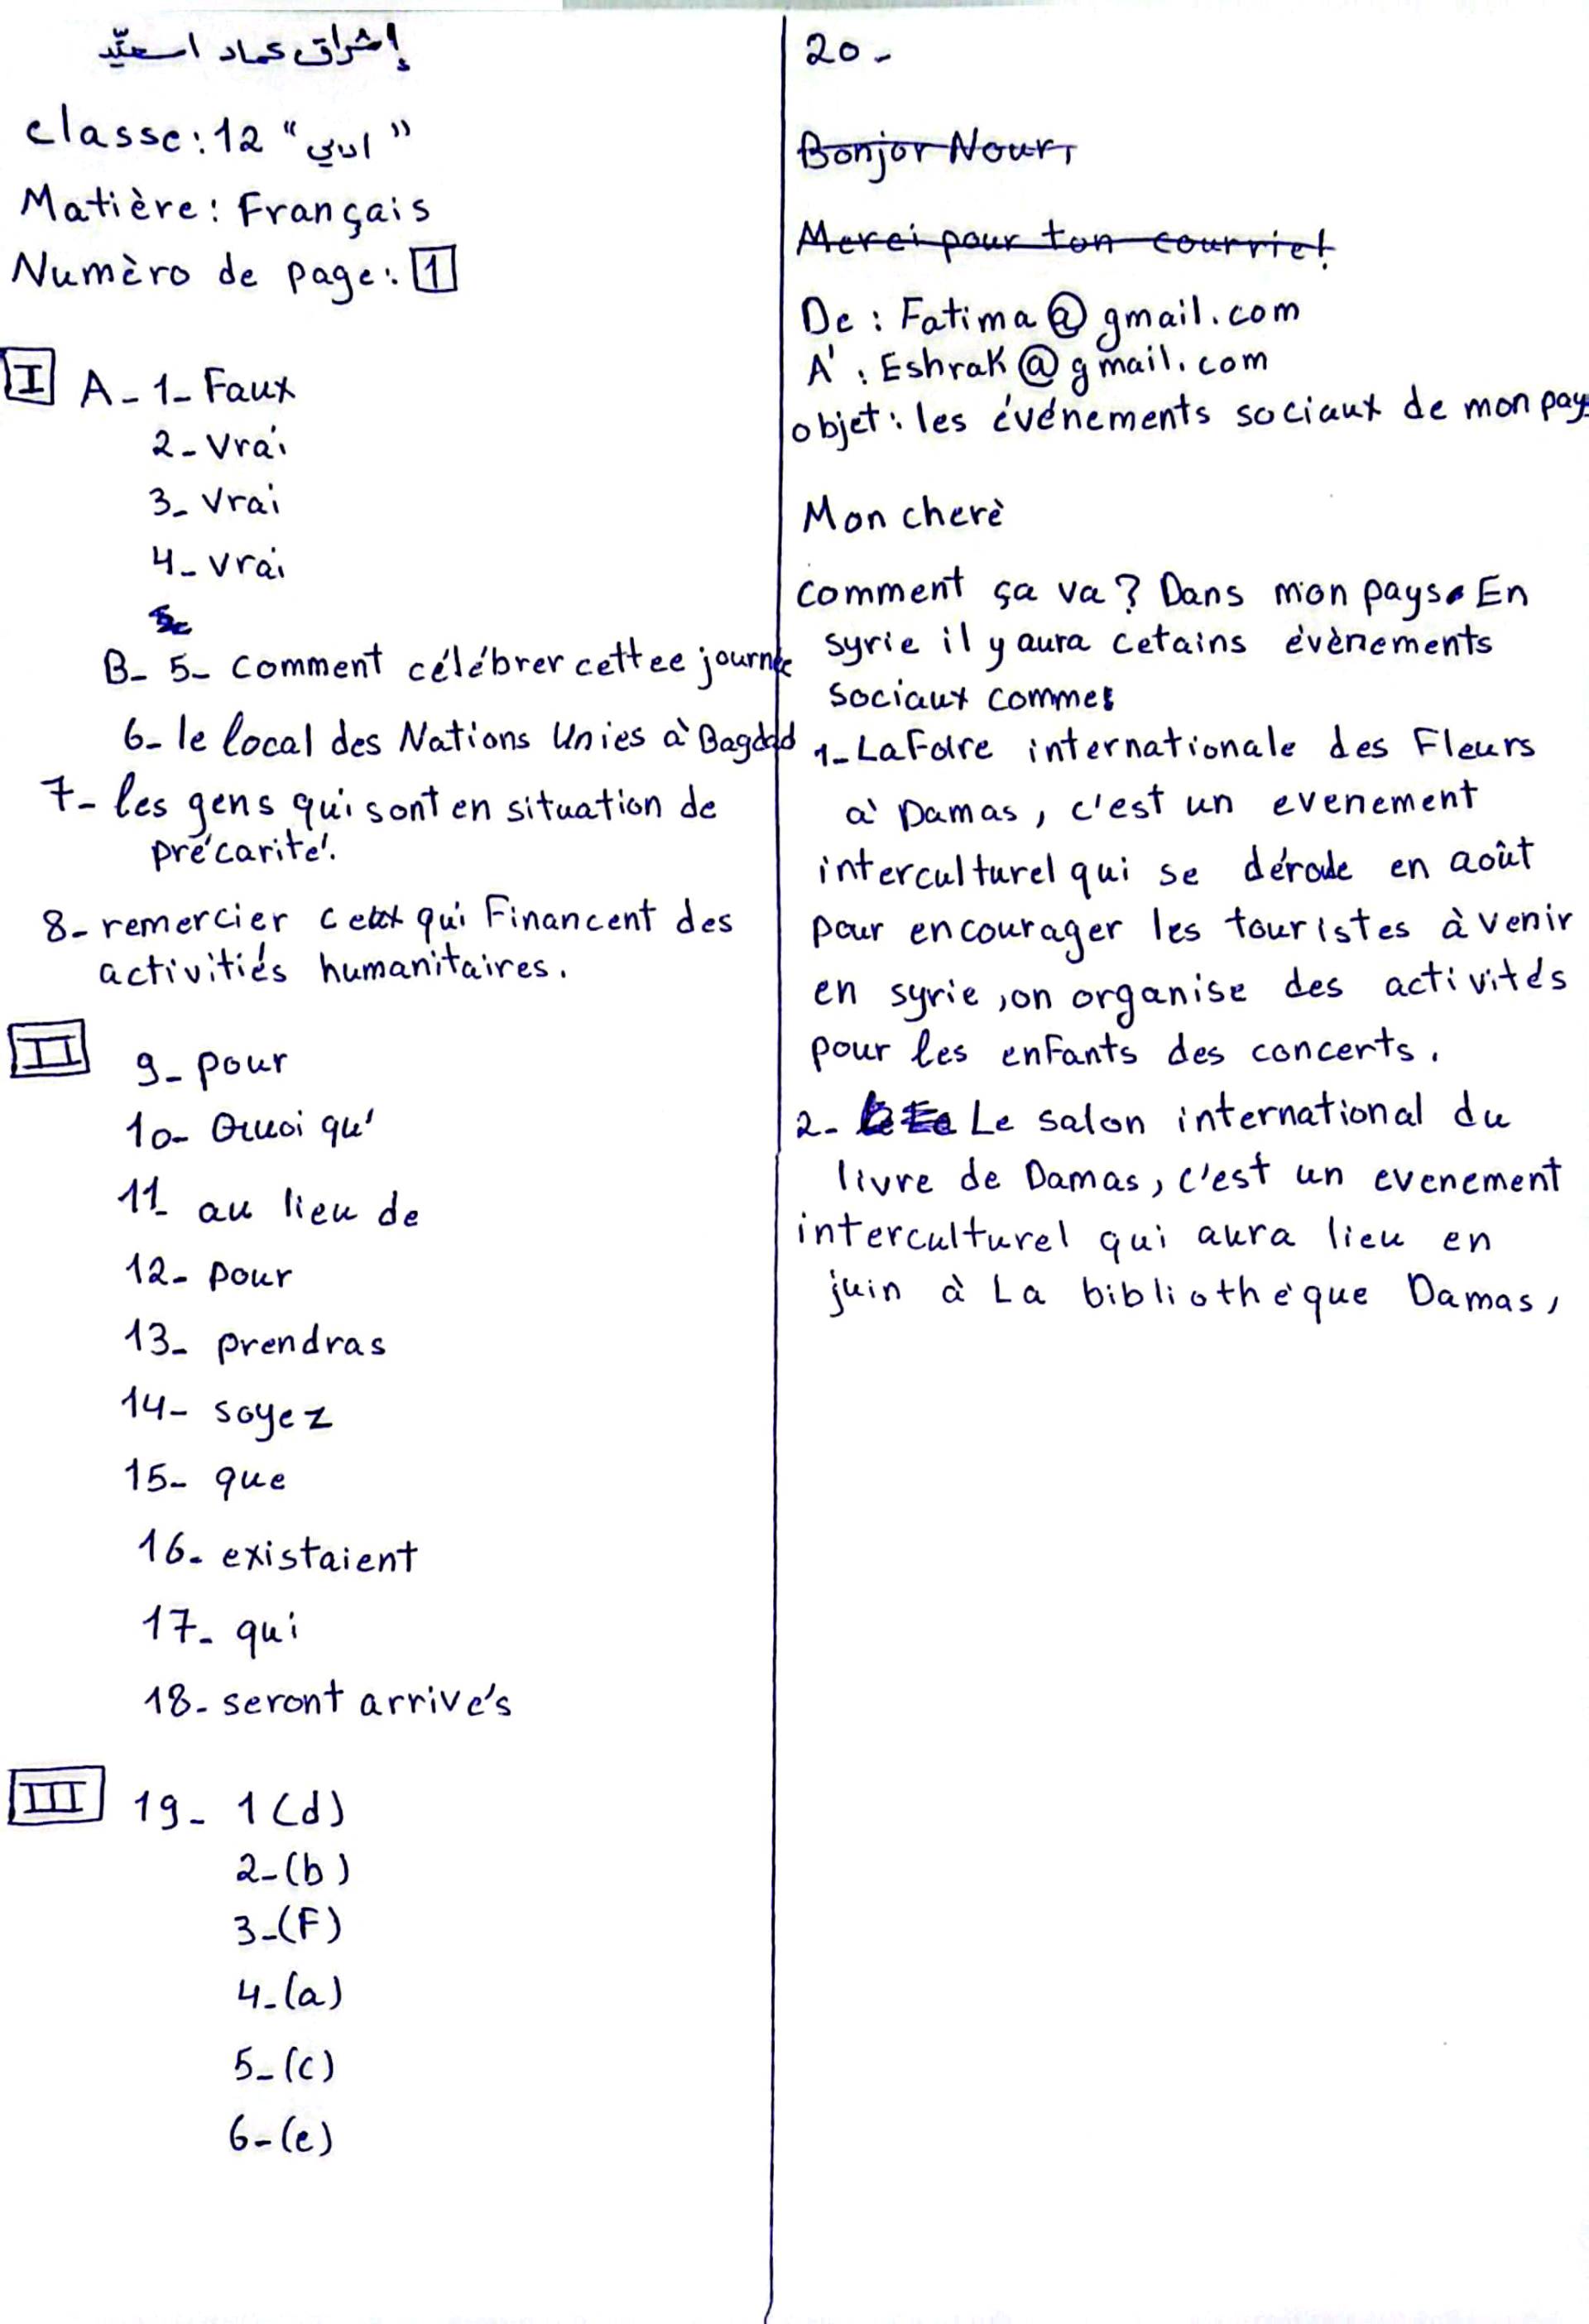 إشراق عماد اسعيّد
classe: 12 "ادبي"
Matière: Français
Numèro de page: 1
I A- 1- Faux
2- Vrai
3- Vrai
4- vrai
B- 5- comment célébrer cettee journée
6- le local des Nations Unies à Bagdad
7- les gens qui sont en situation de
précarité.
8- remercier ceux qui Financent des
activitiés humanitaires.
II 9- pour
10- Quoi qu'
11- au lieu de
12- pour
13- prendras
14- soyez
15- que
16- existaient
17- qui
18- seront arrivés
III 19- 1(d)
2-(b)
3-(F)
4-(a)
5-(c)
6-(e)
20-
Bonjor Nour,
Merci pour ton courriel
De: Fatima@gmail.com
A': Eshrak@gmail.com
objet: les événements sociaux de mon pays
Mon cherè
comment ça va? Dans mon pays. En
syrie il y aura cetains évènements
sociaux comme:
1- La Foire internationale des Fleurs
à Damas, c'est un evenement
interculturel qui se déroule en août
pour encourager les touristes à venir
en syrie, on organise des activités
pour les enfants des concerts.
2- Le salon international du
livre de Damas, c'est un evenement
interculturel qui aura lieu en
juin à La bibliothèque Damas,